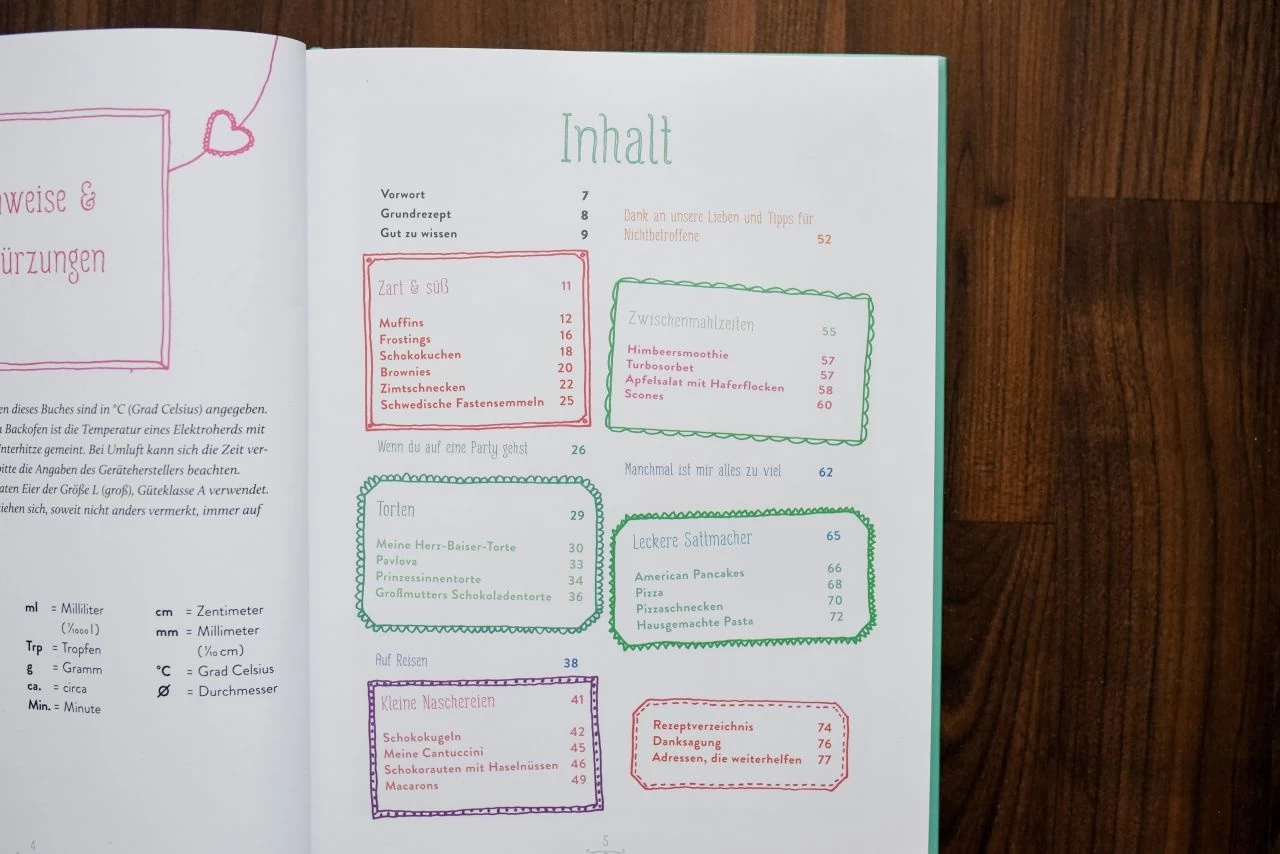 nweise &
ürzungen
en dieses Buches sind in °C (Grad Celsius) angegeben.
n Backofen ist die Temperatur eines Elektroherds mit
nterhitze gemeint. Bei Umluft kann sich die Zeit ver-
bitte die Angaben des Geräteherstellers beachten.
aten Eier der Größe L (groß), Güteklasse A verwendet.
iehen sich, soweit nicht anders vermerkt, immer auf
ml = Milliliter
(1/1000 l)
Trp = Tropfen
g = Gramm
ca. = circa
Min. = Minute
cm = Zentimeter
mm = Millimeter
(1/10 cm)
°C = Grad Celsius
Ø = Durchmesser
4
Inhalt
Vorwort 7
Grundrezept 8
Gut zu wissen 9
Zart & süß 11
Muffins 12
Frostings 16
Schokokuchen 18
Brownies 20
Zimtschnecken 22
Schwedische Fastensemmeln 25
Wenn du auf eine Party gehst 26
Torten 29
Meine Herz-Baiser-Torte 30
Pavlova 33
Prinzessinnentorte 34
Großmutters Schokoladentorte 36
Auf Reisen 38
Kleine Naschereien 41
Schokokugeln 42
Meine Cantuccini 45
Schokorauten mit Haselnüssen 46
Macarons 49
Dank an unsere Lieben und Tipps für
Nichtbetroffene 52
Zwischenmahlzeiten 55
Himbeersmoothie 57
Turbosorbet 57
Apfelsalat mit Haferflocken 58
Scones 60
Manchmal ist mir alles zu viel 62
Leckere Sattmacher 65
American Pancakes 66
Pizza 68
Pizzaschnecken 70
Hausgemachte Pasta 72
Rezeptverzeichnis 74
Danksagung 76
Adressen, die weiterhelfen 77
5